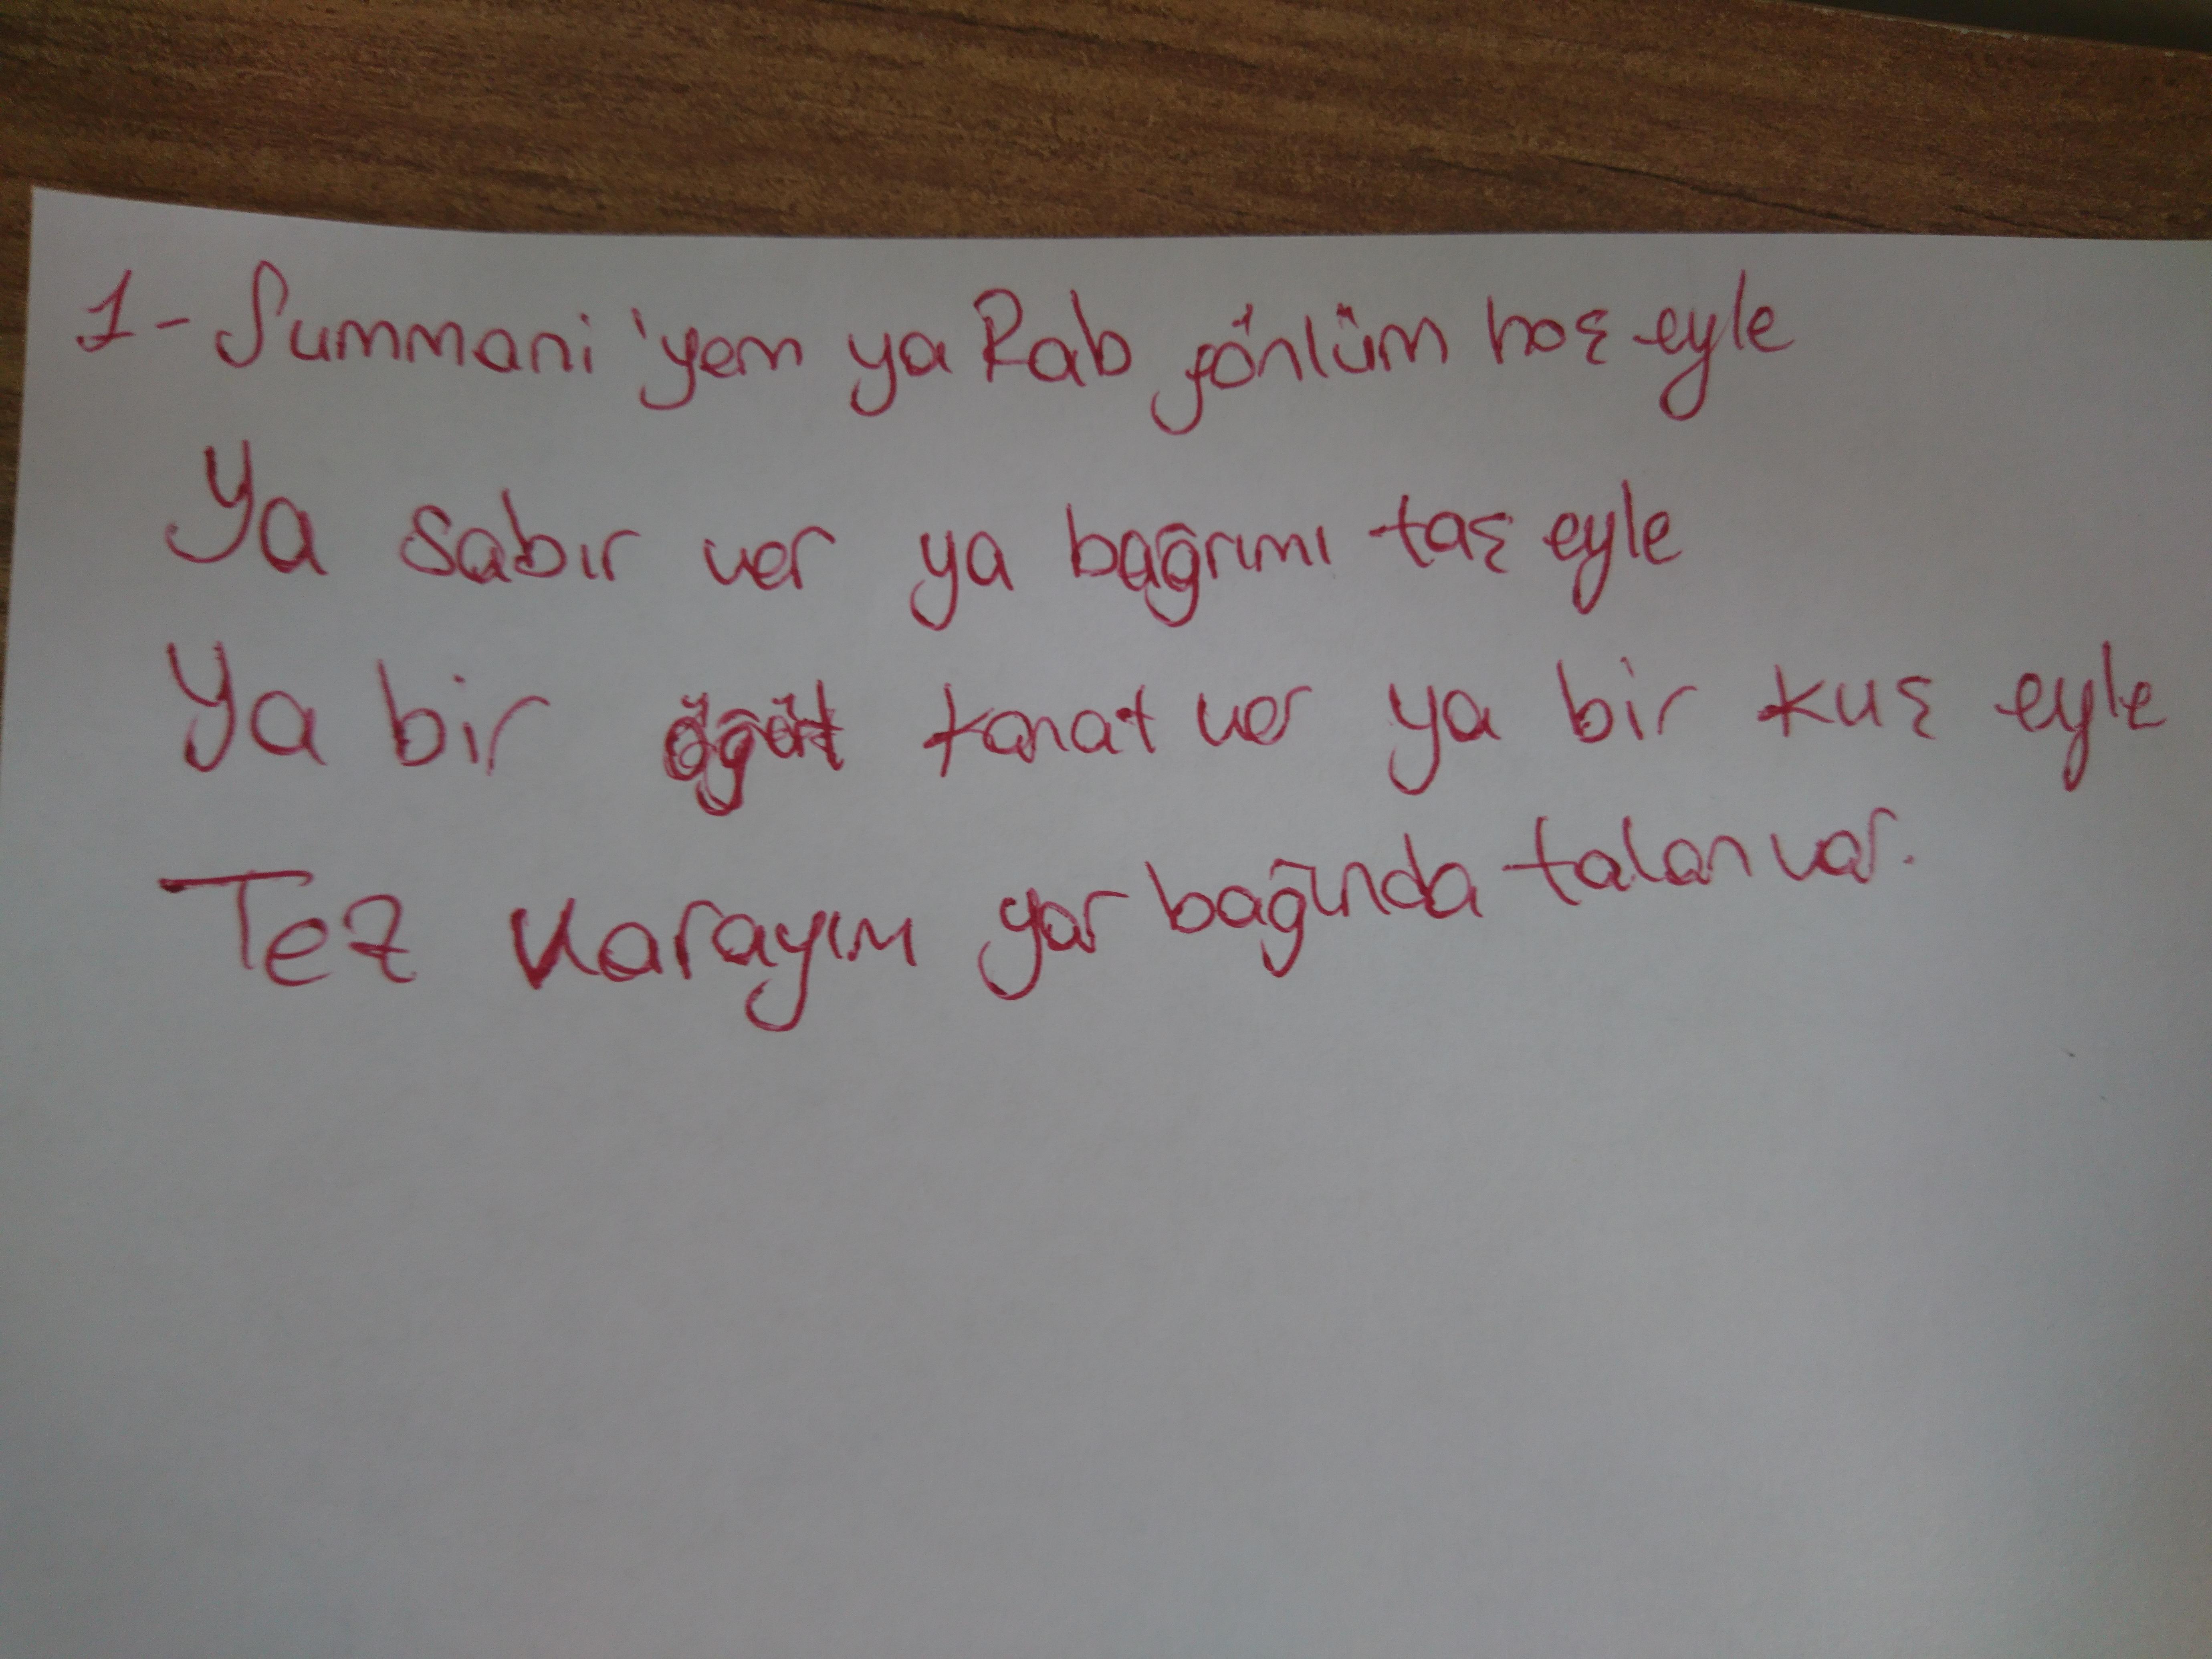 1- Summani'yem ya Rab gönlüm hoş eyle
Ya sabır ver ya bağrımı taş eyle
Ya bir kanat ver ya bir kuş eyle
Tez varayım yar bağında talan var.